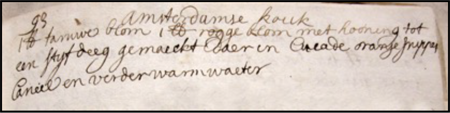 93 Amsterdamse koick
1 ℔ taruwe blom 1 ℔ rogge blom met hooning tot
een styf deeg gemaeckt daer in Sucade oranje snippers
Caneel en verder warm waeter